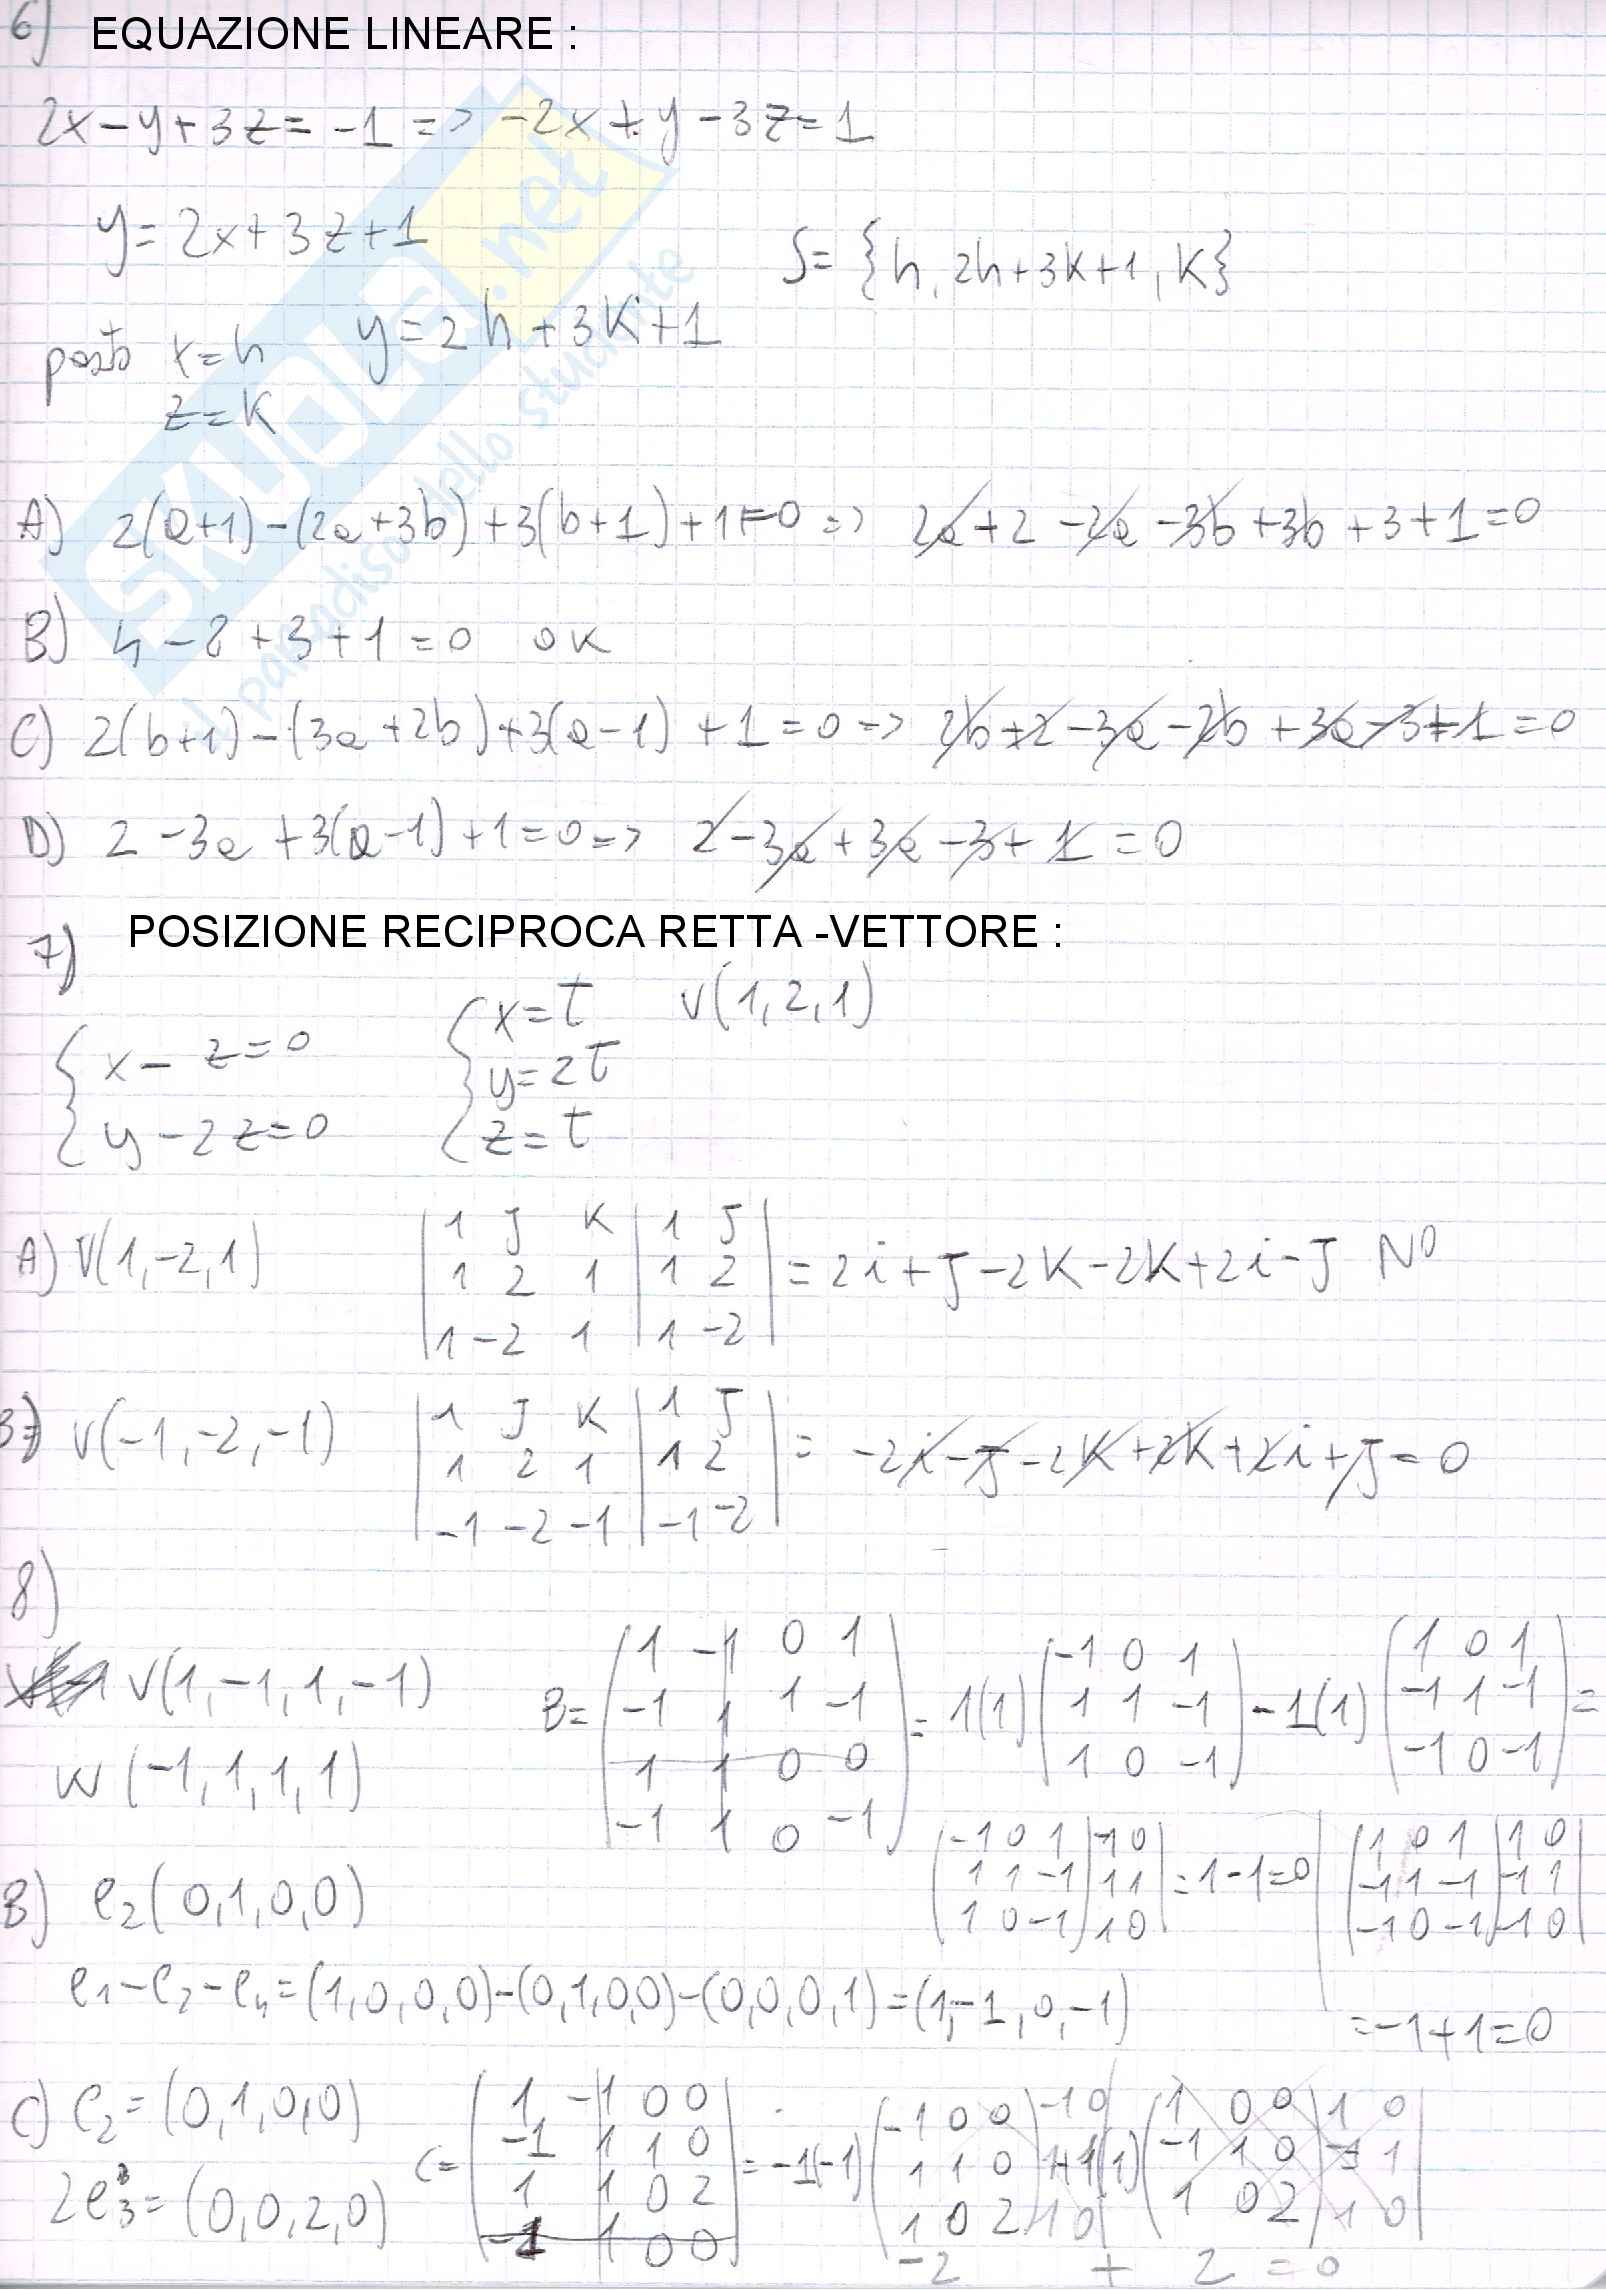 6) EQUAZIONE LINEARE :
2x-y+3z=-1 => -2x+y-3z=1
y=2x+3z+1
S={h, 2h+3K+1, K}
posto x=h y=2h+3K+1
z=K
A) 2(a+1)-(2a+3b)+3(b+1)+1=0 => 2a+2-2a-3b+3b+3+1=0
B) 4-8+3+1=0 OK
C) 2(b+1)-(3a+2b)+3(a-1)+1=0 => 2b+2-3a-2b+3a-3+1=0
D) 2-3a+3(a-1)+1=0 => 2-3a+3a-3+1=0
7) POSIZIONE RECIPROCA RETTA -VETTORE :
x=t V(1,2,1)
x- z=0
y=2t
y-2z=0
z=t
A) V(1,-2,1)
1 J K | 1 J
1 2 1 | 1 2 = 2i+J-2K-2K+2i-J NO
1 -2 1 | 1 -2
B) V(-1,-2,-1)
1 J K | 1 J
1 2 1 | 1 2 = -2i-J-2K+2K+2i+J=0
-1 -2 -1 | -1 -2
8)
V(1,-1,1,-1)
W(-1,1,1,1)
1 -1 0 1
B= -1 1 1 -1
1 1 0 0
-1 1 0 -1
= 1(1)
-1 0 1
1 1 -1
1 0 -1
-1(1)
1 0 1
-1 1 -1
-1 0 -1
=
-1 0 1 | -1 0
1 1 -1 | 1 1 =1-1=0
1 0 -1 | 1 0
1 0 1 | 1 0
-1 1 -1 | -1 1
-1 0 -1 | -1 0
=-1+1=0
B) e2(0,1,0,0)
e1-e2-e4=(1,0,0,0)-(0,1,0,0)-(0,0,0,1)=(1,-1,0,-1)
C) e2=(0,1,0,0)
2e3=(0,0,2,0)
1 -1 0 0
C= -1 1 1 0
1 1 0 2
-1 1 0 0
= -1(-1)
-1 0 0 | -1 0
1 1 0 | 1 1
1 0 2 | 1 0
+1(1)
1 0 0 | 1 0
-1 1 0 | -1 1
1 0 2 | 1 0
-2 + 2 =0
SKUOLA.net
il paradiso dello studente